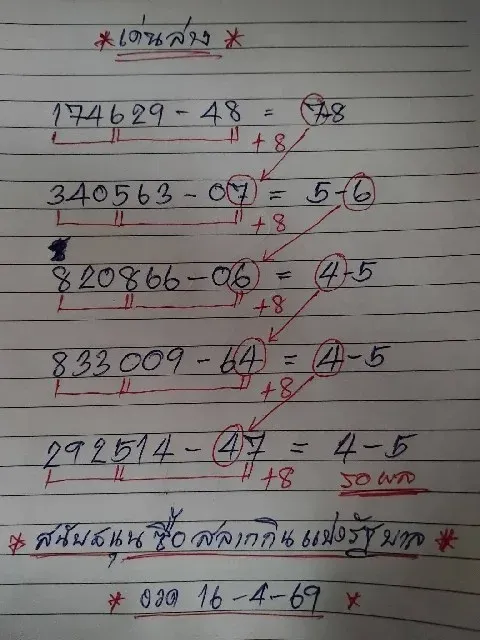 * เด่นล่าง *
174629 - 48 = 7-8
+8
340563 - 07 = 5-6
+8
820866 - 06 = 4-5
+8
833009 - 64 = 4-5
+8
292514 - 47 = 4-5
+8 รอผล
* สนับสนุนซื้อสลากกินแบ่งรัฐบาล *
* งวด 16-4-69 *